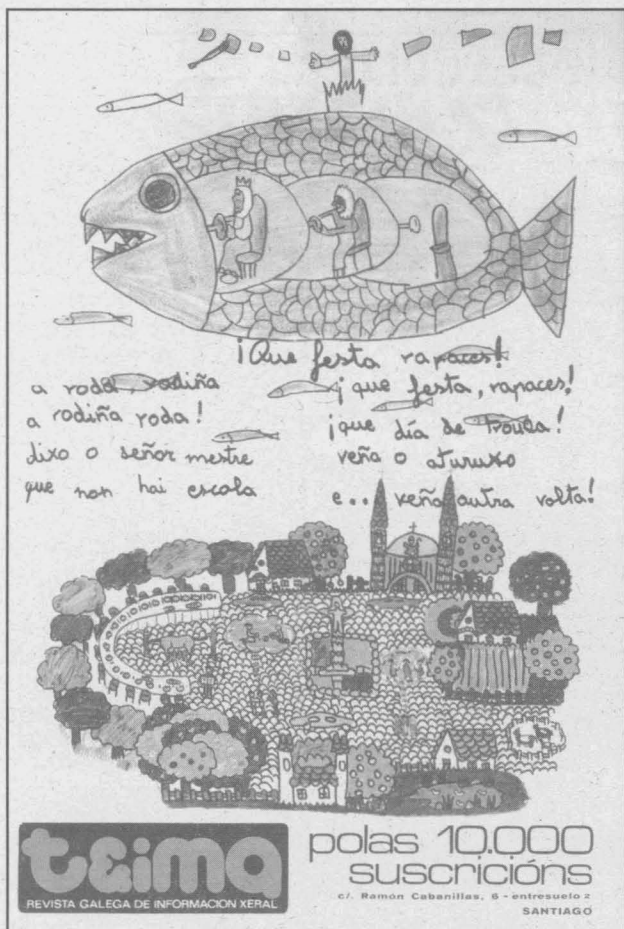 ¡Que festa rapaces!
a roda, rodiña
a rodiña roda!
dixo o señor mestre
que non hai escola
¡que festa, rapaces!
¡que día de troula!
veña o aturuxo
e.. veña outra volta!
teima
REVISTA GALEGA DE INFORMACION XERAL
polas 10.000
suscricións
c/. Ramón Cabanillas, 6 - entresuelo 2
SANTIAGO